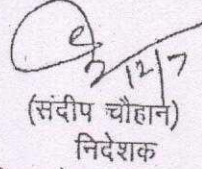 12/7
(संदीप चौहान)
निदेशक